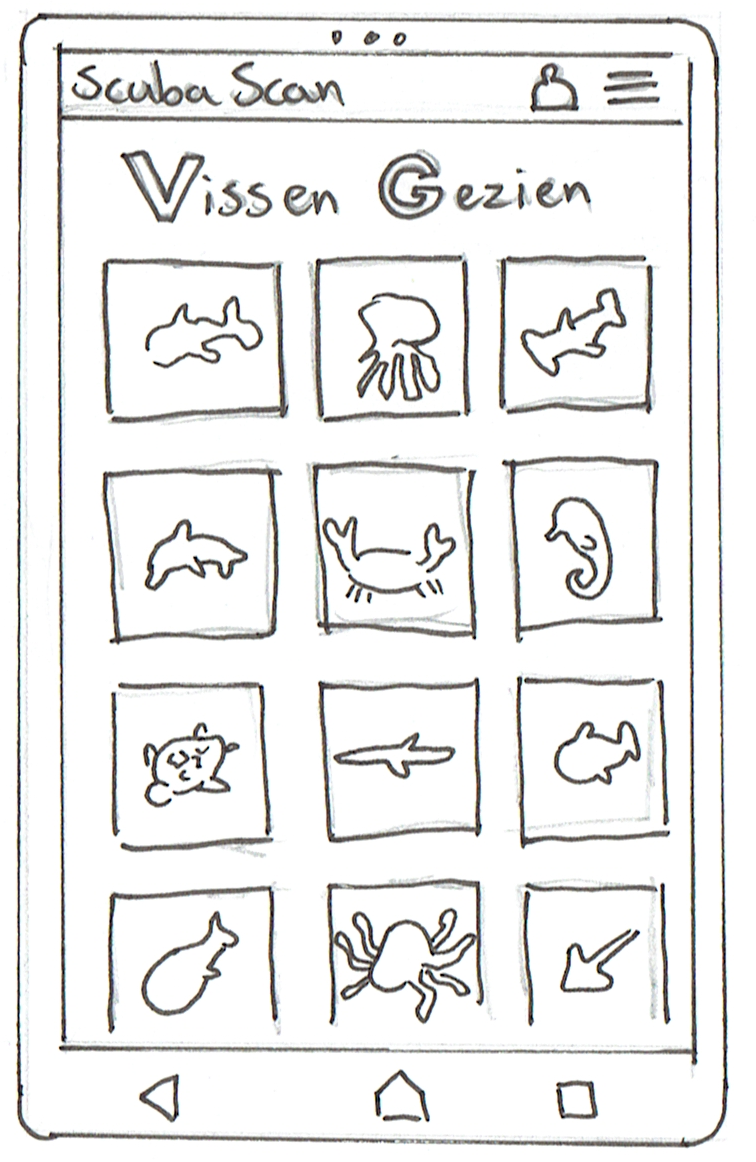 Scuba Scan
Vissen Gezien